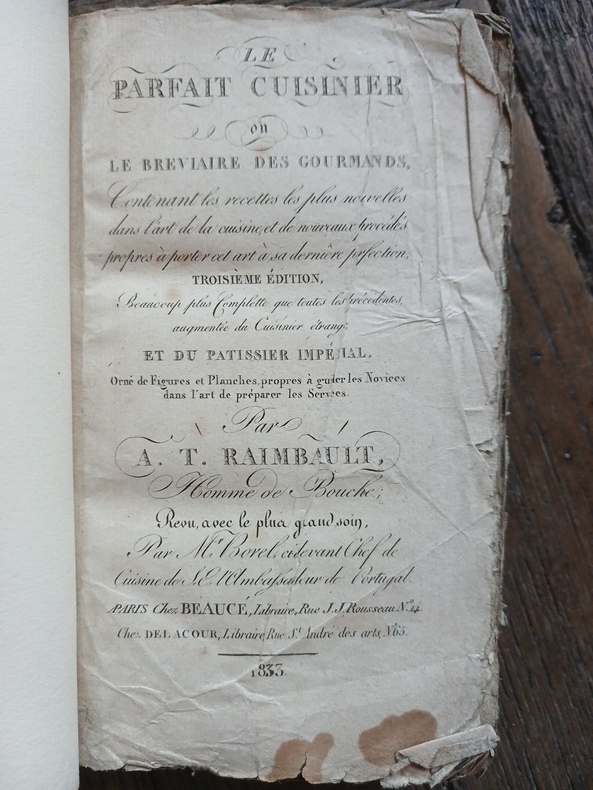 LE
PARFAIT CUISINIER
ou
LE BREVIAIRE DES GOURMANDS,
Contenant les recettes les plus nouvelles
dans l'art de la cuisine, et de nouveaux procédés
propres à porter cet art à sa dernière perfection,
TROISIÈME ÉDITION,
Beaucoup plus Complette que toutes les précédentes,
augmentée du Cuisinier étrang.
ET DU PATISSIER IMPÉRIAL.
Orné de Figures et Planches, propres à guider les Novices
dans l'art de préparer les Services.
Par
A. T. RAIMBAULT,
Homme de Bouche;
Revu, avec le plus grand soin,
Par Mr Borel, cidevant Chef de
Cuisine de S.E. l'Ambassadeur de Portugal.
PARIS Chez BEAUCÉ, Libraire, Rue J.J. Rousseau No. 14
Chez DELACOUR, Libraire, Rue St André des arts, No 65.
1833